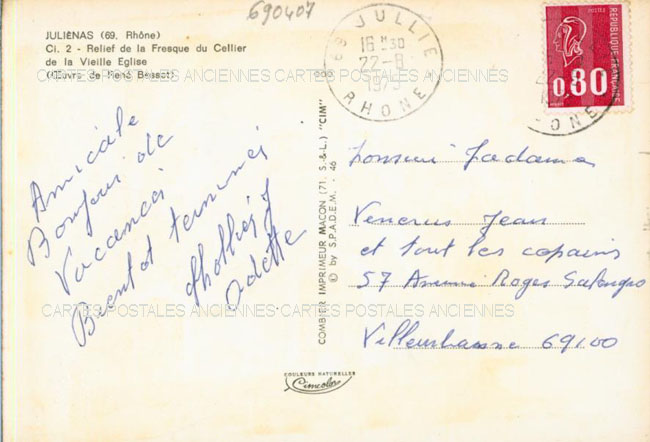 690407
JULIENAS (69. Rhône)
Ci. 2 - Relief de la Fresque du Cellier
de la Vieille Eglise
(Œuvre de René Besset)
69 JULLIE
16 H 30
22-8
1975
RHONE
RHONE
POSTES
0,80
REPUBLIQUE FRANÇAISE
CARTES POSTALES ANCIENNES CARTES POSTALES ANCIENNES
Amicale
Bonjour de
Vacances
Bientot terminés
Odette
COMBIER IMPRIMEUR MACON (71. S.-&-L.) "CIM"
© by S.P.A.D.E.M. - 46
Monsieur Madame
Jean
et tout les copains
57 Avenue Roger Salengro
Villeurbanne 69100
CARTES POSTALES ANCIENNES CARTES POSTALES ANCIENNES
COULEURS NATURELLES
Cimcolor